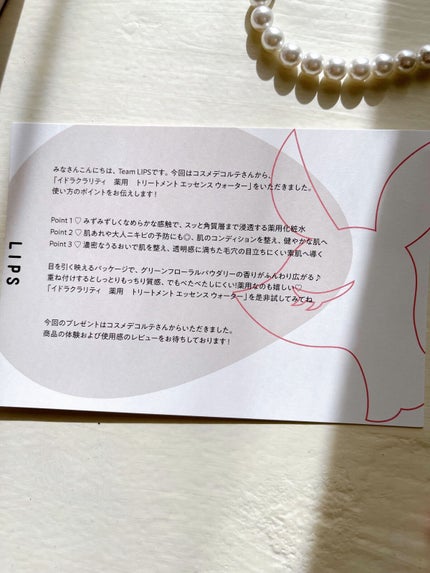 みなさんこんにちは、Team LIPSです。今回はコスメデコルテさんから、
「イドラクラリティ　薬用　トリートメント エッセンス ウォーター」をいただきました。
使い方のポイントをお伝えします！
Point 1 ♡ みずみずしくなめらかな感触で、スッと角質層まで浸透する薬用化粧水
Point 2 ♡ 肌あれや大人ニキビの予防にも◎、肌のコンディションを整え、健やかな肌へ
Point 3 ♡ 濃密なうるおいで肌を整え、透明感に満ちた毛穴の目立ちにくい素肌へ導く
目を引く映えるパッケージで、グリーンフローラルパウダリーの香りがふんわり広がる♪
重ね付けするとしっとりもっちり質感、でもべたべたしにくい!薬用なのも嬉しい♡
「イドラクラリティ　薬用　トリートメント エッセンス ウォーター」を是非試してみてね
今回のプレゼントはコスメデコルテさんからいただきました。
商品の体験および使用感のレビューをお待ちしております！
LIPS